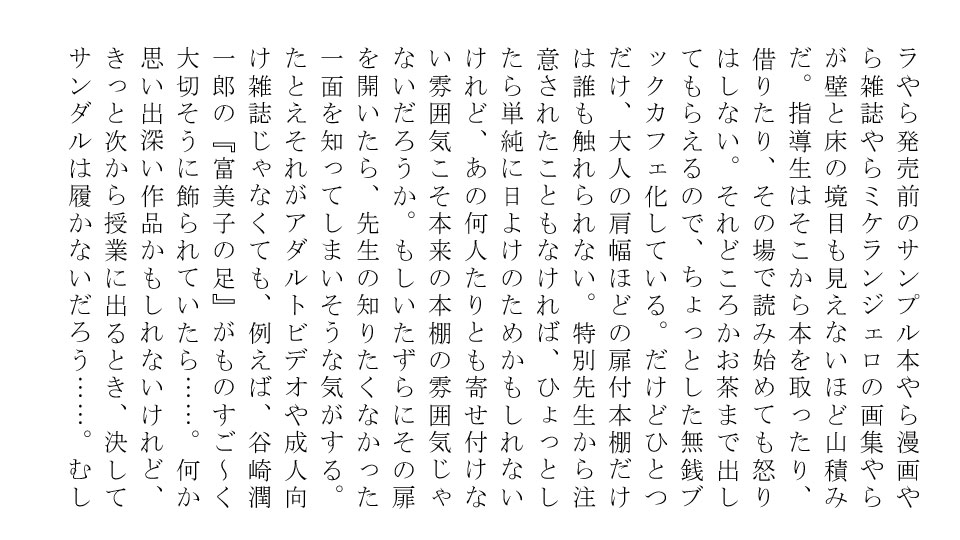 ラやら発売前のサンプル本やら漫画や
ら雑誌やらミケランジェロの画集やら
が壁と床の境目も見えないほど山積み
だ。指導生はそこから本を取ったり、
借りたり、その場で読み始めても怒り
はしない。それどころかお茶まで出し
てもらえるので、ちょっとした無銭ブ
ックカフェ化している。だけどひとつ
だけ、大人の肩幅ほどの扉付本棚だけ
は誰も触れられない。特別先生から注
意されたこともなければ、ひょっとし
たら単純に日よけのためかもしれない
けれど、あの何人たりとも寄せ付けな
い雰囲気こそ本来の本棚の雰囲気じゃ
ないだろうか。もしいたずらにその扉
を開いたら、先生の知りたくなかった
一面を知ってしまいそうな気がする。
たとえそれがアダルトビデオや成人向
け雑誌じゃなくても、例えば、谷崎潤
一郎の『富美子の足』がものすご〜く
大切そうに飾られていたら……。何か
思い出深い作品かもしれないけれど、
きっと次から授業に出るとき、決して
サンダルは履かないだろう……。むし